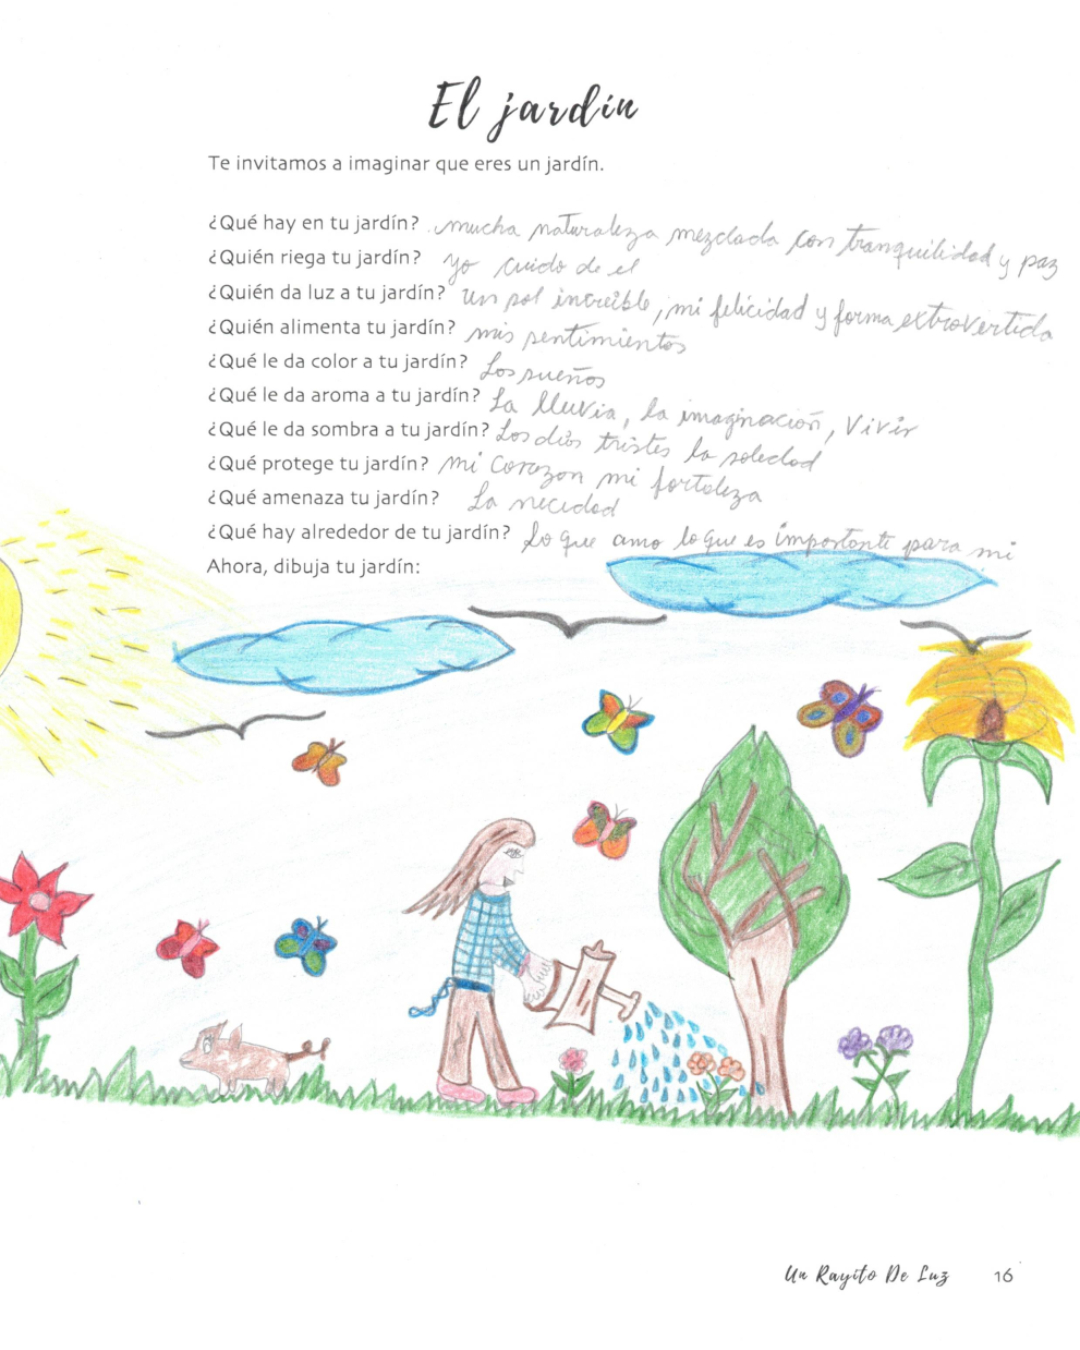 El jardín
Te invitamos a imaginar que eres un jardín.
¿Qué hay en tu jardín? mucha naturaleza mezclada con tranquilidad y paz
¿Quién riega tu jardín? yo cuido de el
¿Quién da luz a tu jardín? un sol increíble, mi felicidad y forma extrovertida
¿Quién alimenta tu jardín? mis sentimientos
¿Qué le da color a tu jardín? Los sueños
¿Qué le da aroma a tu jardín? La lluvia, la imaginación, Vivir
¿Qué le da sombra a tu jardín? Los días tristes la soledad
¿Qué protege tu jardín? mi corazon mi fortaleza
¿Qué amenaza tu jardín? La necidad
¿Qué hay alrededor de tu jardín? Lo que amo lo que es importante para mi
Ahora, dibuja tu jardín:
Un Rayito De Luz 16